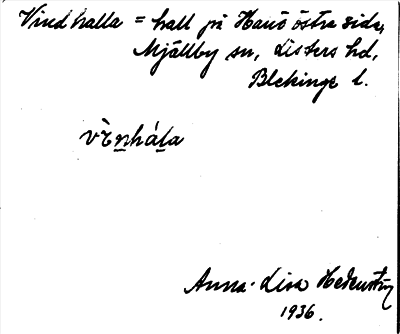 Vindhalla = hall på Hanö östra sida,
Mjällby sn, Listers hd,
Blekinge l.
vὲn̲hál̲a
Anna-Lisa Hedenström
1936.